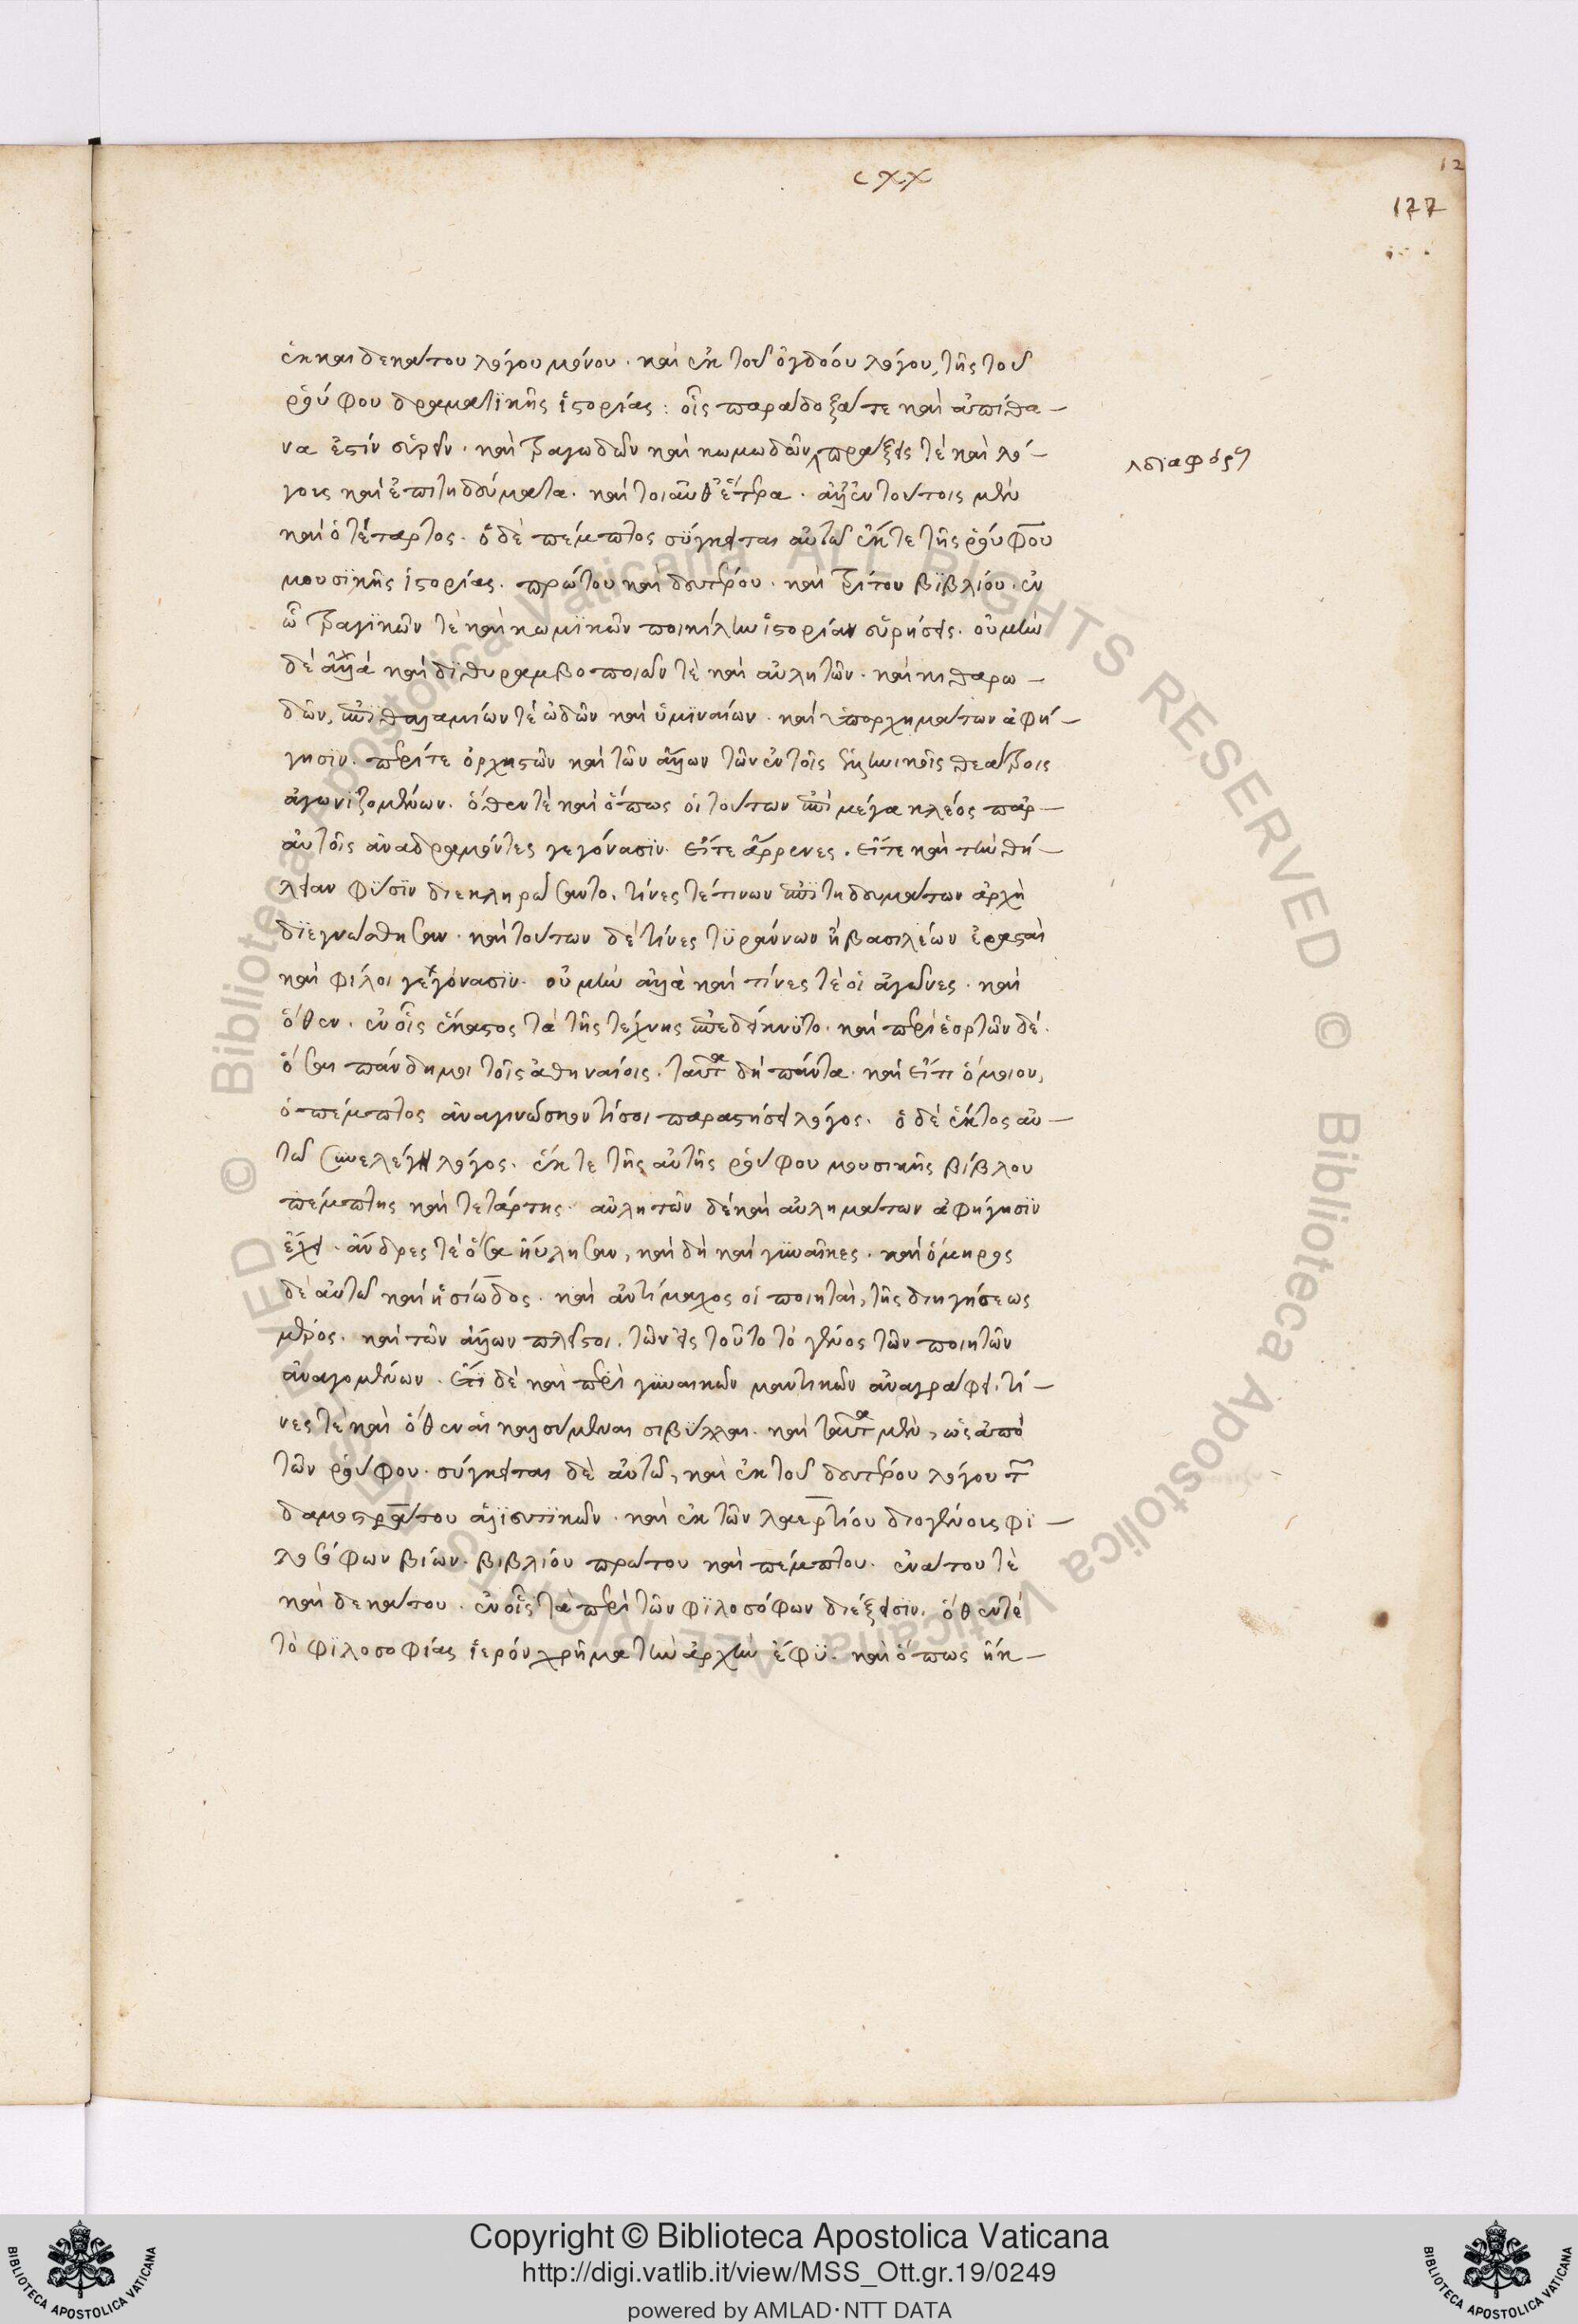 cxx
12
177
ἑκκαιδεκάτου λόγου μόνου. καὶ ἐκ τοῦ ὀγδόου λόγου, τῆς τοῦ
ῥούφου δραματϊκῆς ἱστορίας: οἷς παράδοξά τε καὶ ἀπίθα-
να ἐστὶν εὑρεῖν. καὶ τραγωδῶν καὶ κωμωδῶν πράξεις τὲ καὶ λό-
γους καὶ ἐπιτηδεύματα. καὶ τοιαῦθ' ἕτερα. ἀλλ' ἐν τούτοις μὲν
διαφόρους
καὶ ὁ τέταρτος. ὁ δὲ πέμπτος σύγκειται αὐτῶ ἔκ τε τῆς ῥούφου
μουσϊκῆς ἱστορίας. πρώτου καὶ δευτέρου. καὶ τρίτου βϊβλίου. ἐν
ὧ τραγϊκῶν τὲ καὶ κωμϊκῶν ποικίλην ἱστορίαν εὑρήσεις. οὐ μὴν
δὲ ἀλλὰ καὶ δϊθυραμβοποιῶν τὲ καὶ αὐλητῶν. καὶ κιθαρω-
δῶν, ἐπϊθαλαμίων τὲ ὠδῶν καὶ ὑμϊναίων. καὶ ὑπορχημάτων ἀφή-
γησϊν. περί τε ὀρχηστῶν καὶ τῶν ἄλλων τῶν ἐν τοῖς ἑλληνικοῖς θεάτροις
ἀγωνιζομένων. ὅθεν τὲ καὶ ὅπως οἱ τούτων ἐπὶ μέγα κλέος παρ-
αὐτοῖς ἀναδραμόντες γεγόνασϊν. εἴτε ἄρρενες. εἴτε καὶ τὴν θή-
λειαν φύσϊν διεκληρώσαντο. τίνες τέ τινων ἐπϊτηδευμάτων ἀρχὴ
δϊεγνώσθησαν. καὶ τούτων δὲ τίνες τϋράννων ἢ βασιλέων ἐρασταὶ
καὶ φίλοι γεγόνασϊν. οὐ μὴν ἀλλὰ καὶ τίνες τὲ οἱ ἀγῶνες. καὶ
ὅθεν. ἐν οἷς ἕκαστος τὰ τῆς τέχνης ἐπεδείκνϋτο. καὶ περὶ ἑορτῶν δὲ.
ὅσαι πάνδημοι τοῖς ἀθηναίοις. ταῦτα δὴ πάντα. καὶ εἴ τι ὅμοιον,
ὁ πέμπτος ἀναγινώσκοντί σοι παραστήσει λόγος. ὁ δὲ ἕκτος αὐ-
τῶ συνελέγη λόγος. ἔκ τε τῆς αὐτῆς ῥούφου μουσικῆς βίβλου
πέμπτης καὶ τετάρτης. αὐλητῶν δὲ καὶ αὐλημάτων ἀφήγησϊν
ἔχει. ἄνδρες τὲ ὅσα ηὔλησαν, καὶ δὴ καὶ γϋναῖκες. καὶ ὅμηρος
δὲ αὐτῶ καὶ ἡσίωδος. καὶ ἀντίμαχος οἱ ποιηταὶ, τῆς διηγήσεως
μέρος. καὶ τῶν ἄλλων πλεῖστοι. τῶν εἰς τοῦτο τὸ γένος τῶν ποιητῶν
ἀναγομένων. ἔτϊ δὲ καὶ περὶ γϋναικῶν μαντικῶν ἀναγράφει. τί-
νες τὲ καὶ ὅθεν αἱ καλούμεναι σιβύλλαι. καὶ ταῦτα μὲν, ὡς ἀπὸ
τῶν ῥούφου. σύγκειται δὲ αὐτῶ, καὶ ἐκ τοῦ δευτέρου λόγου τῶν
δαμοστράτου ἁλϊευτϊκῶν. καὶ ἐκ τῶν λαερτίου διογένους φϊ-
λοσόφων βίων. βιβλίου πρώτου καὶ πέμπτου. ἐνάτου τὲ
καὶ δεκάτου. ἐν οἷς τὰ περὶ τῶν φϊλοσόφων διέξεισϊν. ὅθεν τὲ
τὸ φϊλοσοφίας ἱερὸν χρῆμα τὴν ἀρχὴν ἔφϋ. καὶ ὅπως ἤκ-
Copyright © Biblioteca Apostolica Vaticana
http://digi.vatlib.it/view/MSS_Ott.gr.19/0249
powered by AMLAD·NTT DATA
BIBLIOTECA APOSTOLICA VATICANA
BIBLIOTECA APOSTOLICA VATICANA
© Biblioteca Apostolica Vaticana ALL RIGHTS RESERVED
© Biblioteca Apostolica Vaticana ALL RIGHTS RESERVED